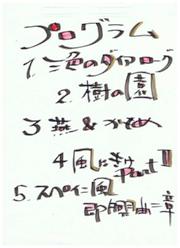 プログラム
1. 三色のダイアローグ
2. 樹の園
3 燕 & かもめ
4 風にきけ Part II
5. スペイン風
即興曲二章